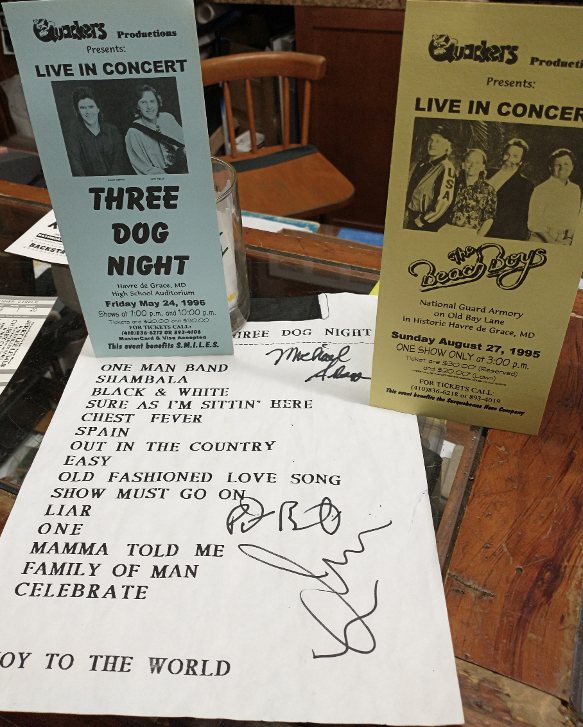 Quackers Productions
Presents:
LIVE IN CONCERT
THREE
DOG
NIGHT
Havre de Grace, MD
High School Auditorium
Friday May 24, 1996
Shows at 7:00 p.m. and 10:00 p.m.
FOR TICKETS CALL:
(410)836-6272 OR 893-4108
MasterCard & Visa Accepted
This event benefits S.M.I.L.E.S.
Quackers Producti
Presents:
LIVE IN CONCER
USA
The
Beach Boys
National Guard Armory
on Old Bay Lane
in Historic Havre de Grace, MD
Sunday August 27, 1995
ONE SHOW ONLY at 3:00 p.m.
Tickets are $30.00 (Reserved)
and $20.00 (Lawn)
FOR TICKETS CALL:
(410)836-6218 or 893-4019
This event benefits the Susquehanna Hose Company
BACKSTA
THREE DOG NIGHT
Michael
ONE MAN BAND
SHAMBALA
BLACK & WHITE
SURE AS I'M SITTIN' HERE
CHEST FEVER
SPAIN
OUT IN THE COUNTRY
EASY
OLD FASHIONED LOVE SONG
SHOW MUST GO ON
LIAR
ONE
MAMMA TOLD ME
FAMILY OF MAN
CELEBRATE
OY TO THE WORLD